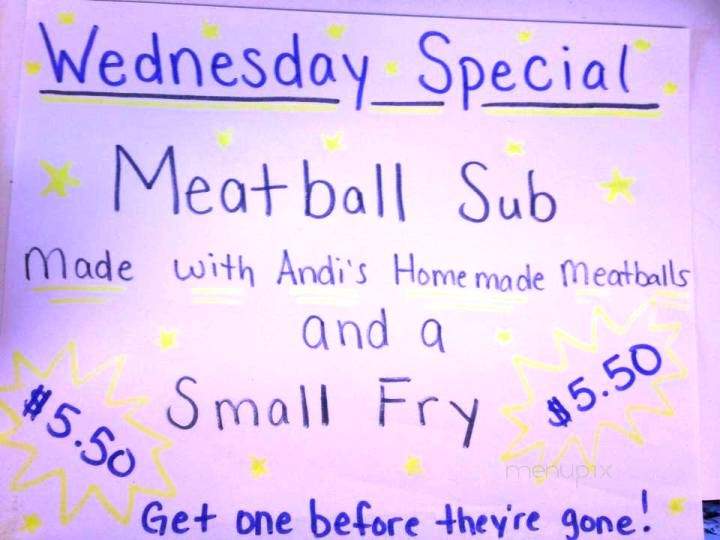 Wednesday Special
Meatball Sub
Made with Andi's Homemade Meatballs
and a
Small Fry
$5.50
$5.50
menupix
Get one before they're gone!